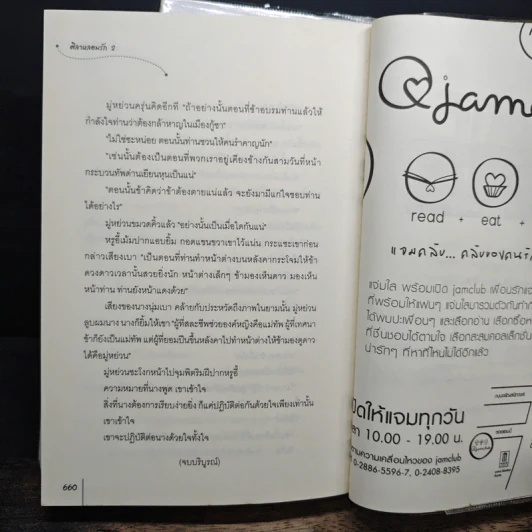 ศิลาแสลงรัก ๖
มู่หย่วนครุ่นคิดอีกที "ถ้าอย่างนั้นตอนที่ข้าอบรมท่านแล้วให้
กำลังใจท่านว่าต้องกล้าหาญในเมืองกู้ซา"
"ไม่ใช่ซะหน่อย ตอนนั้นท่านชวนให้คนรำคาญนัก"
"เช่นนั้นต้องเป็นตอนที่พวกเราอยู่เคียงข้างกันสามวันที่หน้า
กระบวนทัพด่านเยียนหุนเป็นแน่"
"ตอนนั้นข้าคิดว่าข้าต้องตายแน่แล้ว จะยังมามีแก่ใจชอบท่าน
ได้อย่างไร"
มู่หย่วนขมวดคิ้วแล้ว "อย่างนั้นเป็นเมื่อใดกันแน่"
หรูอี้เม้มปากแอบยิ้ม กอดแขนขวาเขาไว้แน่น กระแซะเขาก่อน
กล่าวเสียงเบา "เป็นตอนที่ท่านทำหน้าต่างบนหลังคากระโจมให้ข้า
ดวงดาวเวลานั้นสวยยิ่งนัก หน้าต่างเล็กๆ ข้ามองเห็นดาว มองเห็น
หน้าท่าน ท่านยังหน้าแดงด้วย"
เสียงของนางนุ่มเบา คล้ายกับประหวัดถึงภาพในยามนั้น มู่หย่วน
ลูบผมนาง นางก็ยิ้มให้เขา "ผู้ที่สละชีพช่วยองค์หญิงคือแม่ทัพ ผู้ที่เทศนา
ข้าก็ยังเป็นแม่ทัพ แต่ผู้ที่ยอมปีนขึ้นหลังคาไปทำหน้าต่างให้ข้ามองดูดาว
ได้คือมู่หย่วน"
มู่หย่วนชะโงกหน้าไปจุมพิตริมฝีปากหรูอี้
ความหมายที่นางพูด เขาเข้าใจ
สิ่งที่นางต้องการเรียบง่ายยิ่ง ก็แค่ปฏิบัติต่อกันด้วยใจเพียงเท่านั้น
เขาเข้าใจ
เขาจะปฏิบัติต่อนางด้วยใจทั้งใจ
(จบบริบูรณ์)
660
jam
read + eat +
แจ่มคลับ... คลับของคนรัก
แจ่มใส พร้อมเปิด jamclub เพื่อนรักแจ่
ที่พร้อมให้แฟนๆ แจ่มใสมารวมตัวกันทำกิ
ได้พบปะเพื่อนๆ และเลือกอ่าน เลือกซื้อห
ที่ชื่นชอบได้ตามใจ เลือกสะสมคอลเล็กชัน
น่ารักๆ ที่หาที่ไหนไม่ได้อีกแล้ว
ปิดให้แจมทุกวัน
ลา 10.00 - 19.00 น.
ตามความเคลื่อนไหวของ jamclub
0-2886-5596-7, 0-2408-8395